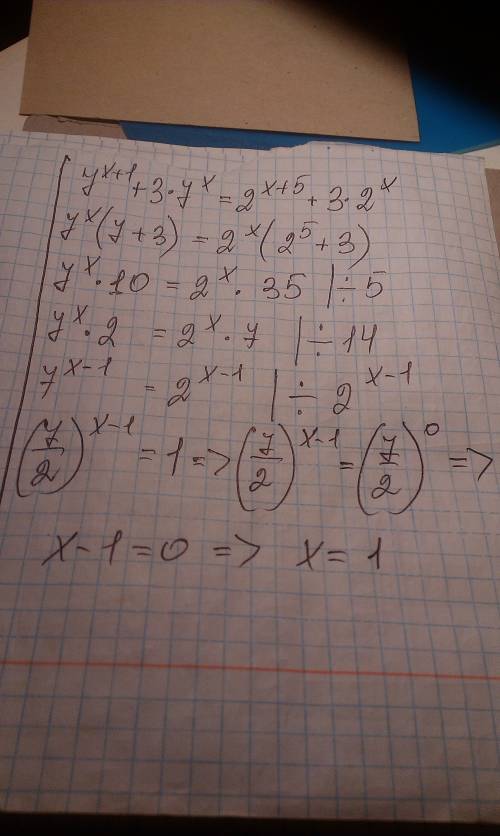 7^{x+1} + 3·7^x = 2^{x+5} + 3·2^x
7^x (7+3) = 2^x (2^5 + 3)
7^x · 10 = 2^x · 35 | ÷ 5
7^x · 2 = 2^x · 7 | ÷ 14
7^{x-1} = 2^{x-1} | ÷ 2^{x-1}
(7/2)^{x-1} = 1 => (7/2)^{x-1} = (7/2)^0 =>
x-1=0 => x=1